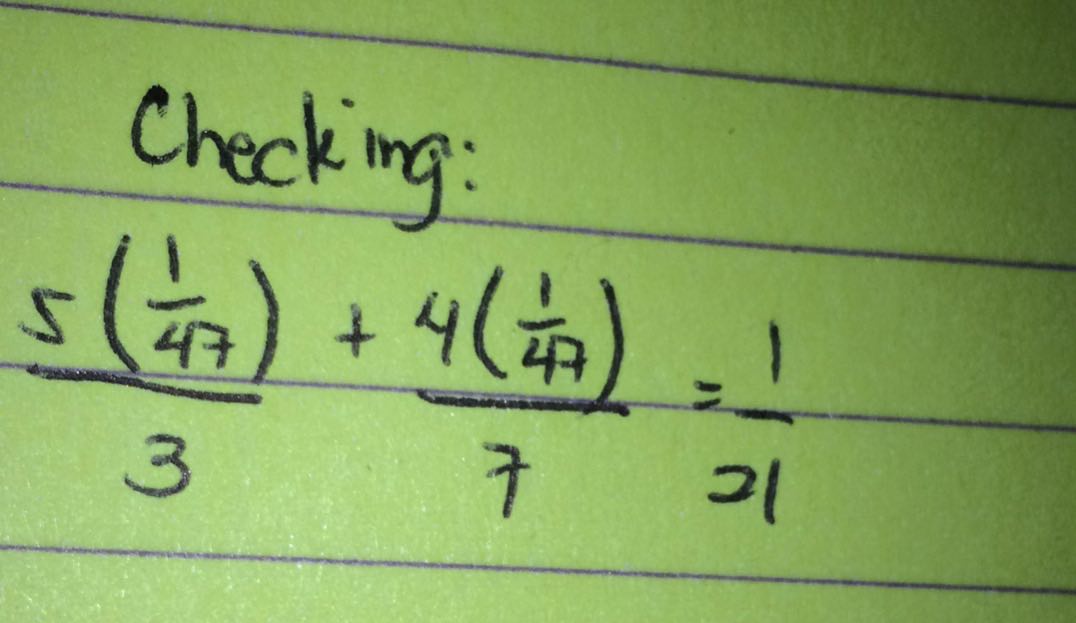 Checking:
5(1/47)/3 + 4(1/47)/7 = 1/21